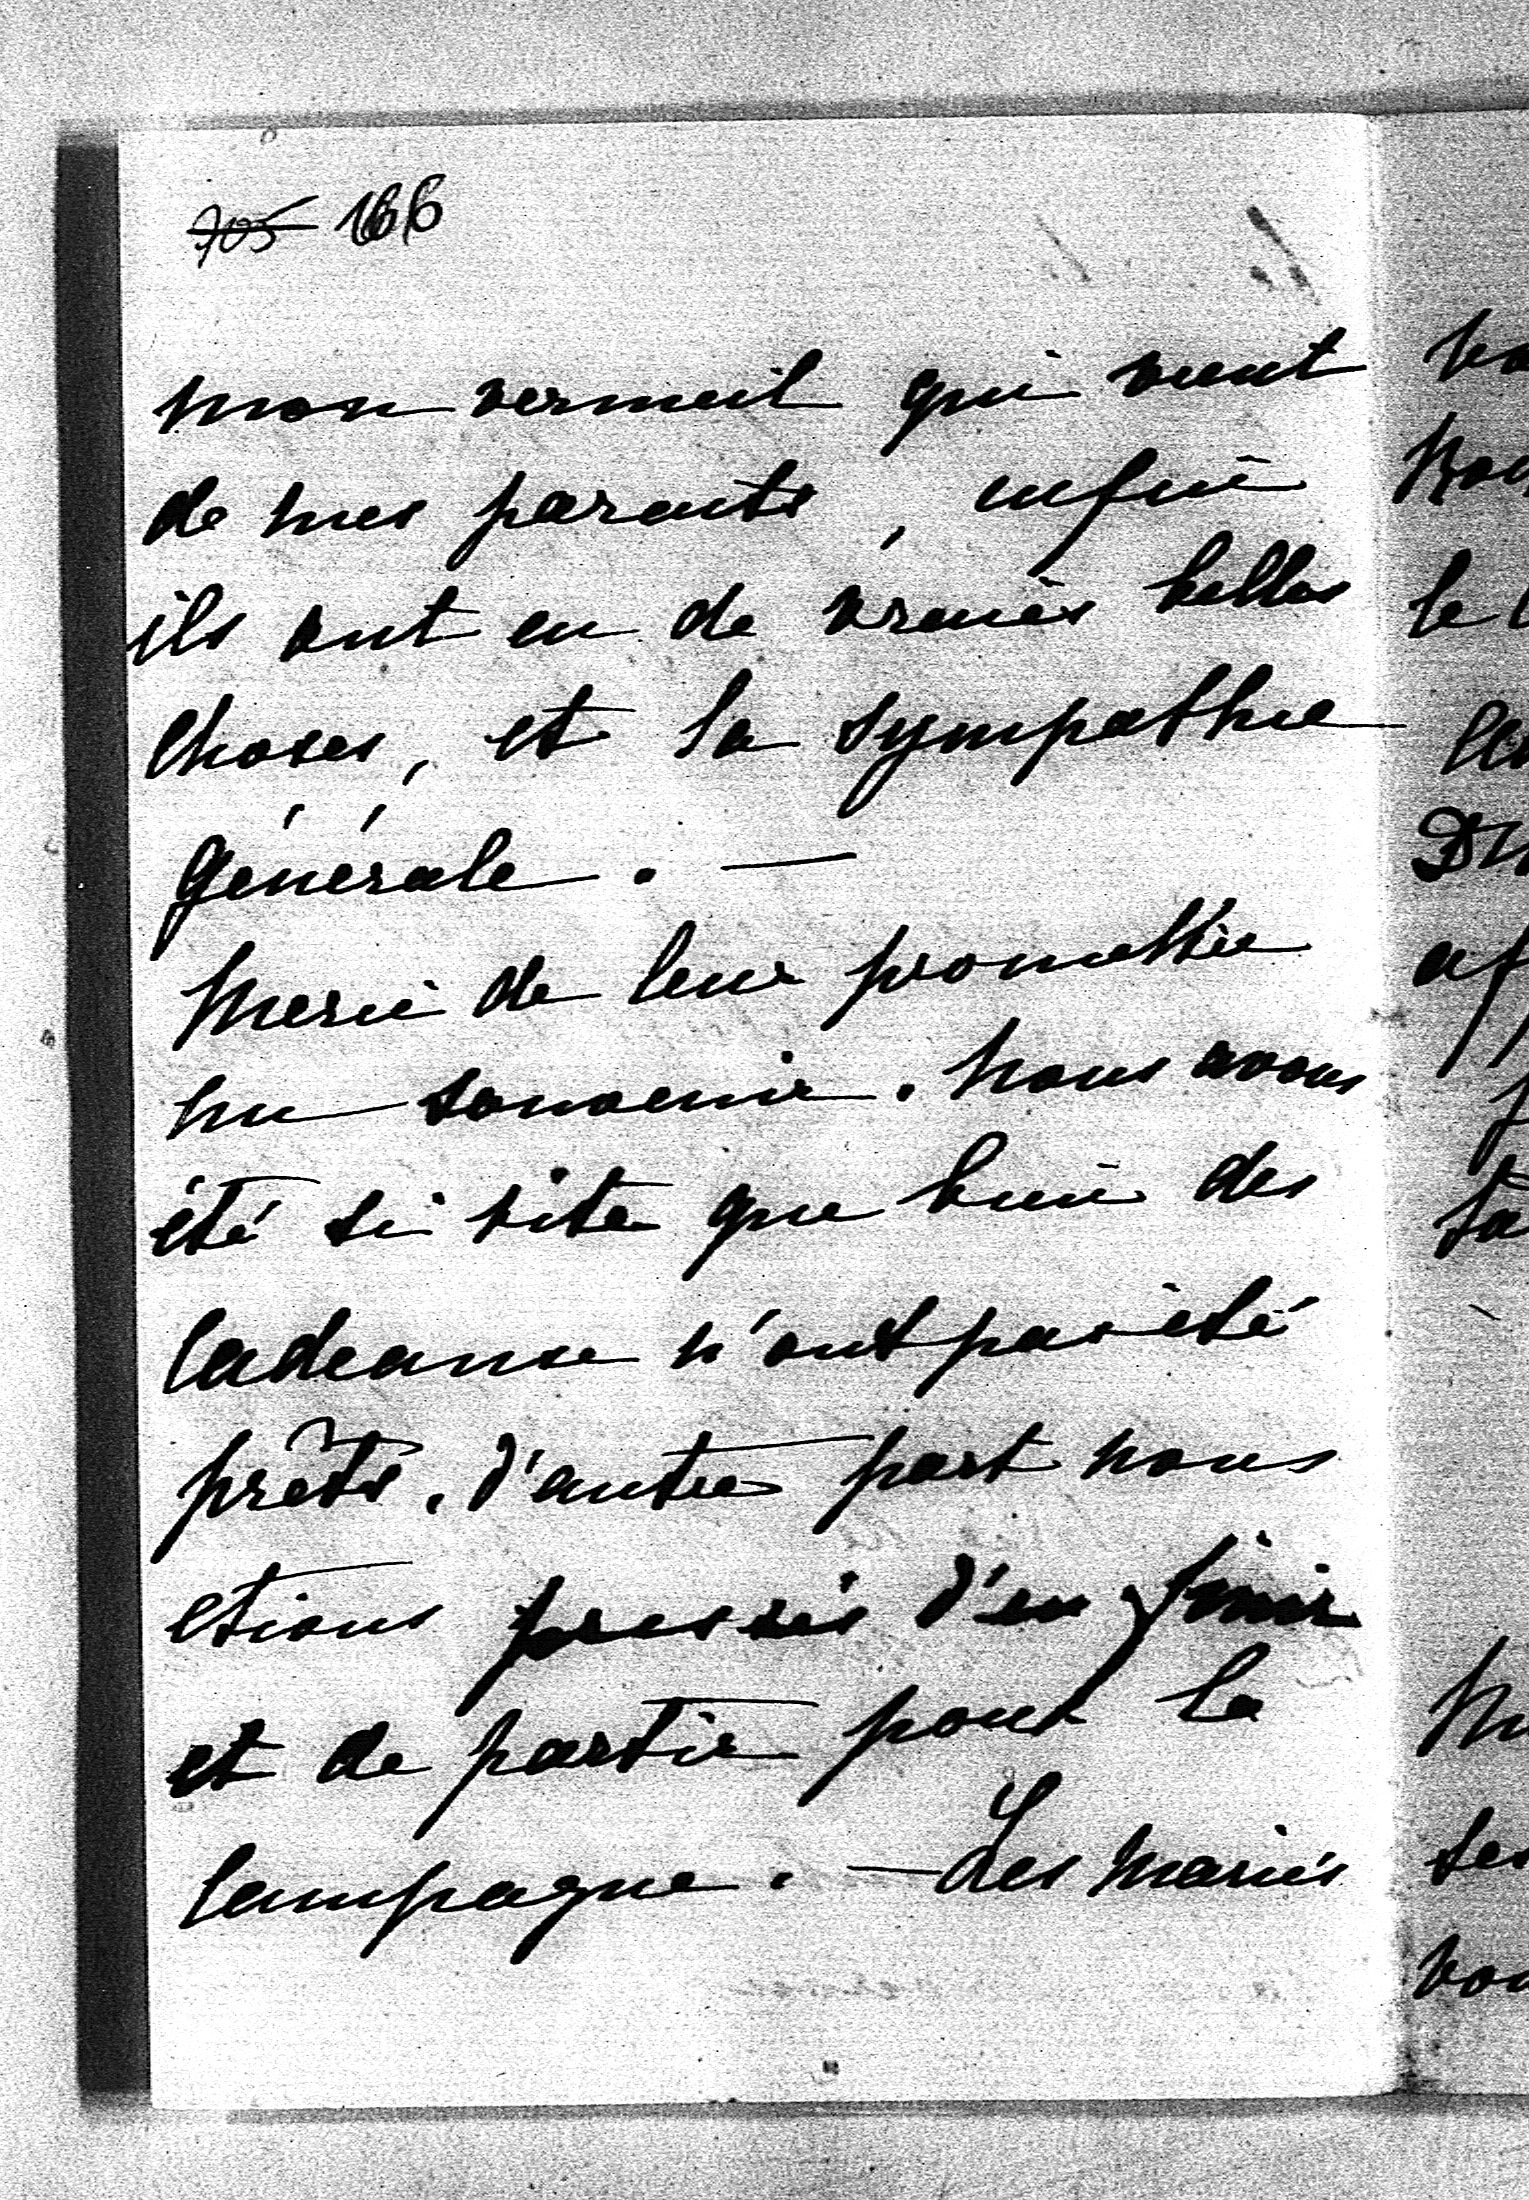 705 166
mon vermeil qui vient
de mes parents, enfin
ils ont eu de vraies belles
choses, et la sympathie
générale. —
Merci de leur promettre
un souvenir. Nous avons
été si vite que bien des
cadeaux n'ont pas été
prêts. D'autre part nous
etions pressés d'en finir
et de partir pour la
campagne. — Les mariés